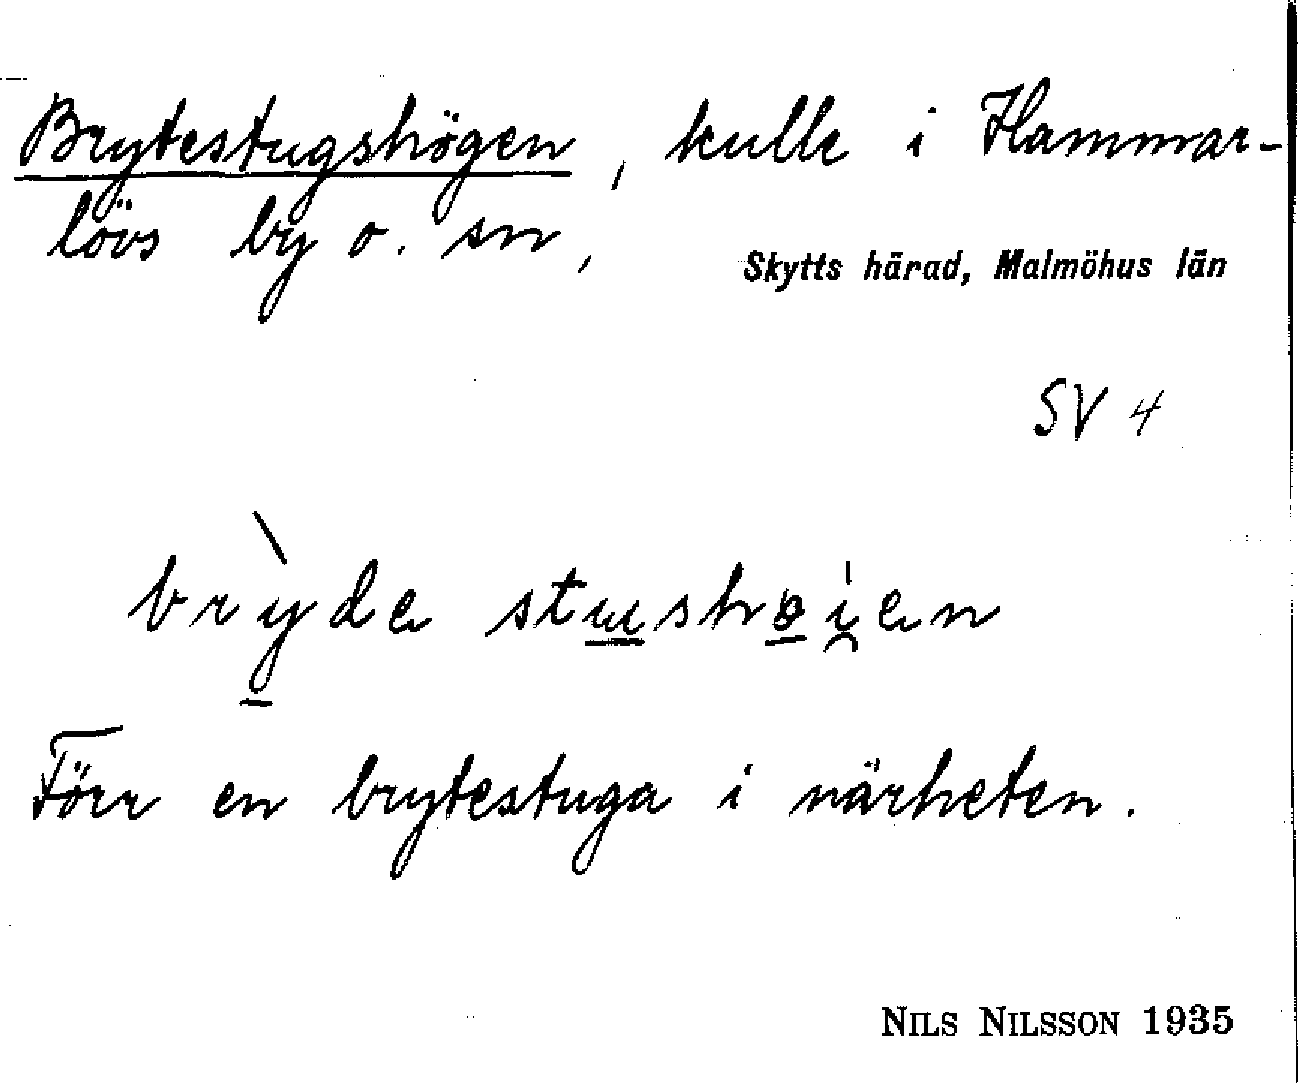 Brytestugshögen, kulle i Hammar-
lövs by o. sn,
Skytts härad, Malmöhus län
SV 4
brỳde stɯshøi̯en
Förr en brytestuga i närheten.
NILS NILSSON 1935